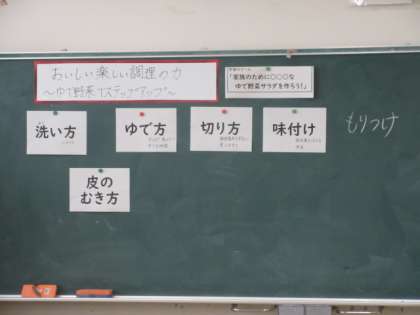 おいしい楽しい調理の力
～ゆで野菜でステップアップ～
「家族のために○○○な
ゆで野菜サラダを作ろう!」
洗い方
ゆで方
切り方
味付け
もりつけ
皮の
むき方